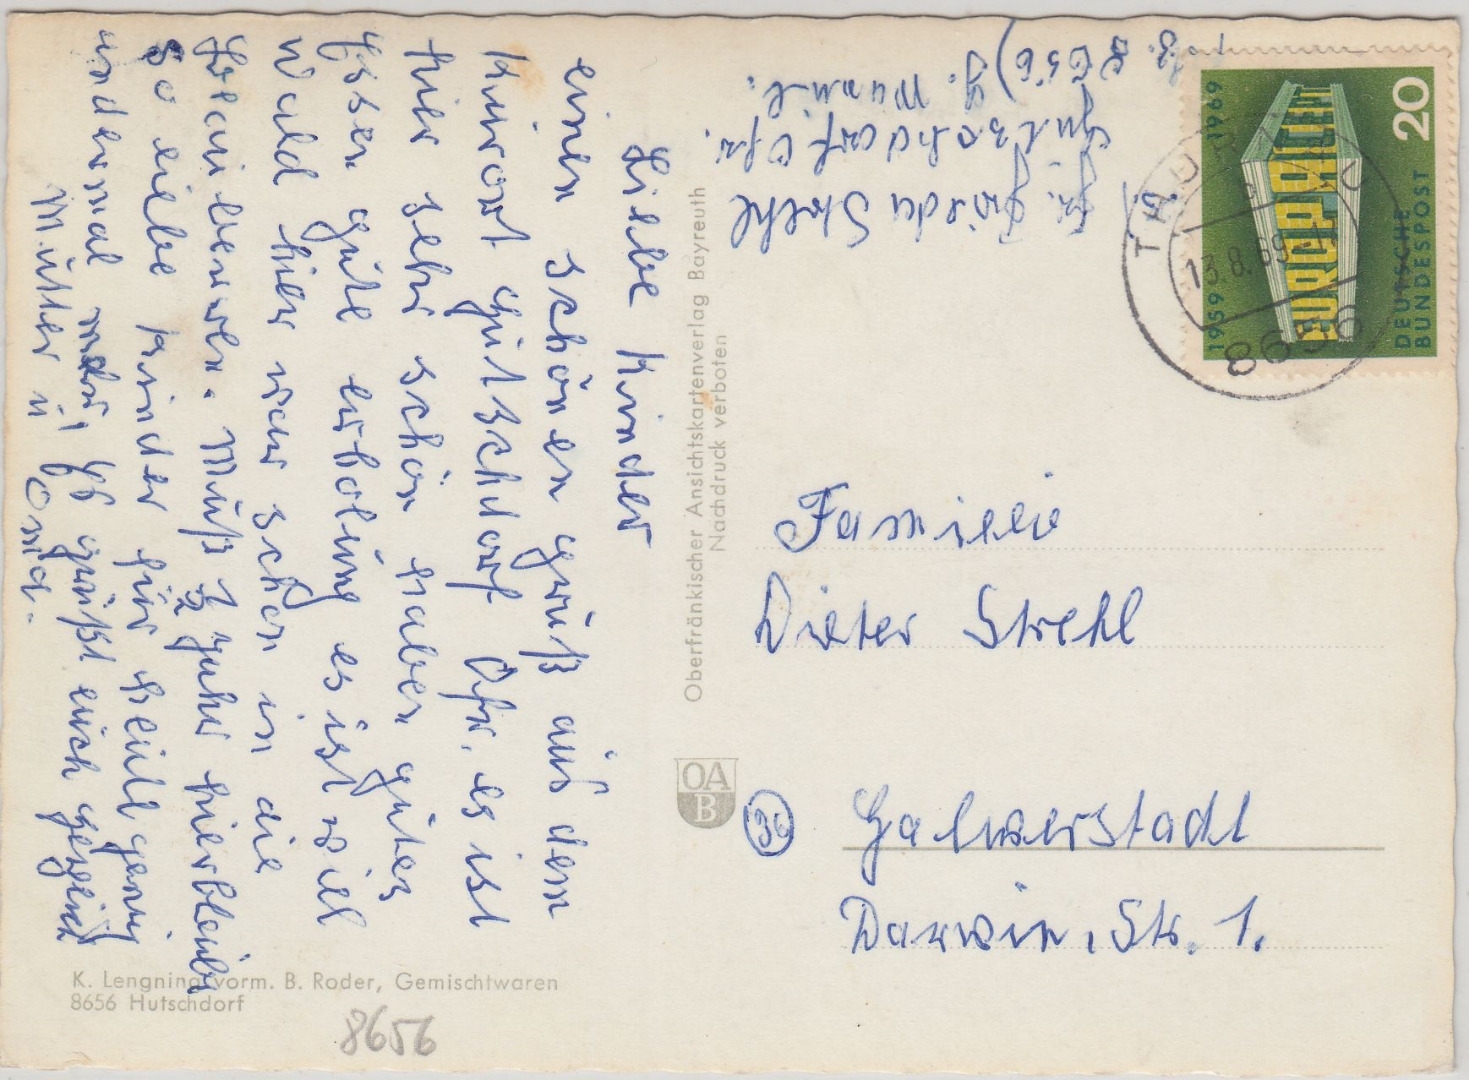 Liebe Kinder
einen schönen gruß aus dem
Kurort Hutschdorf Ofr. es ist
hier sehr schön haben gutes
Essen gute erholung es ist viel
Wald hier war schon in die
Muß 1/2 Jahr hierbleiben
So liebe Kinder für heut genug
andermal mehr, Es grüßt euch herzlich
Mutter u Oma.
Frieda Strehl
Hutschdorf Ofr.
8656
Oberfränkischer Ansichtskartenverlag Bayreuth
Nachdruck verboten
OA
B
1959
1969
EUROPA CEPT
20
DEUTSCHE
BUNDESPOST
THURNAU
13.8.69
8656
Familie
Dieter Strehl
Halberstadt
Darwin. Str. 1.
K. Lengning vorm. B. Roder, Gemischtwaren
8656 Hutschdorf
8656